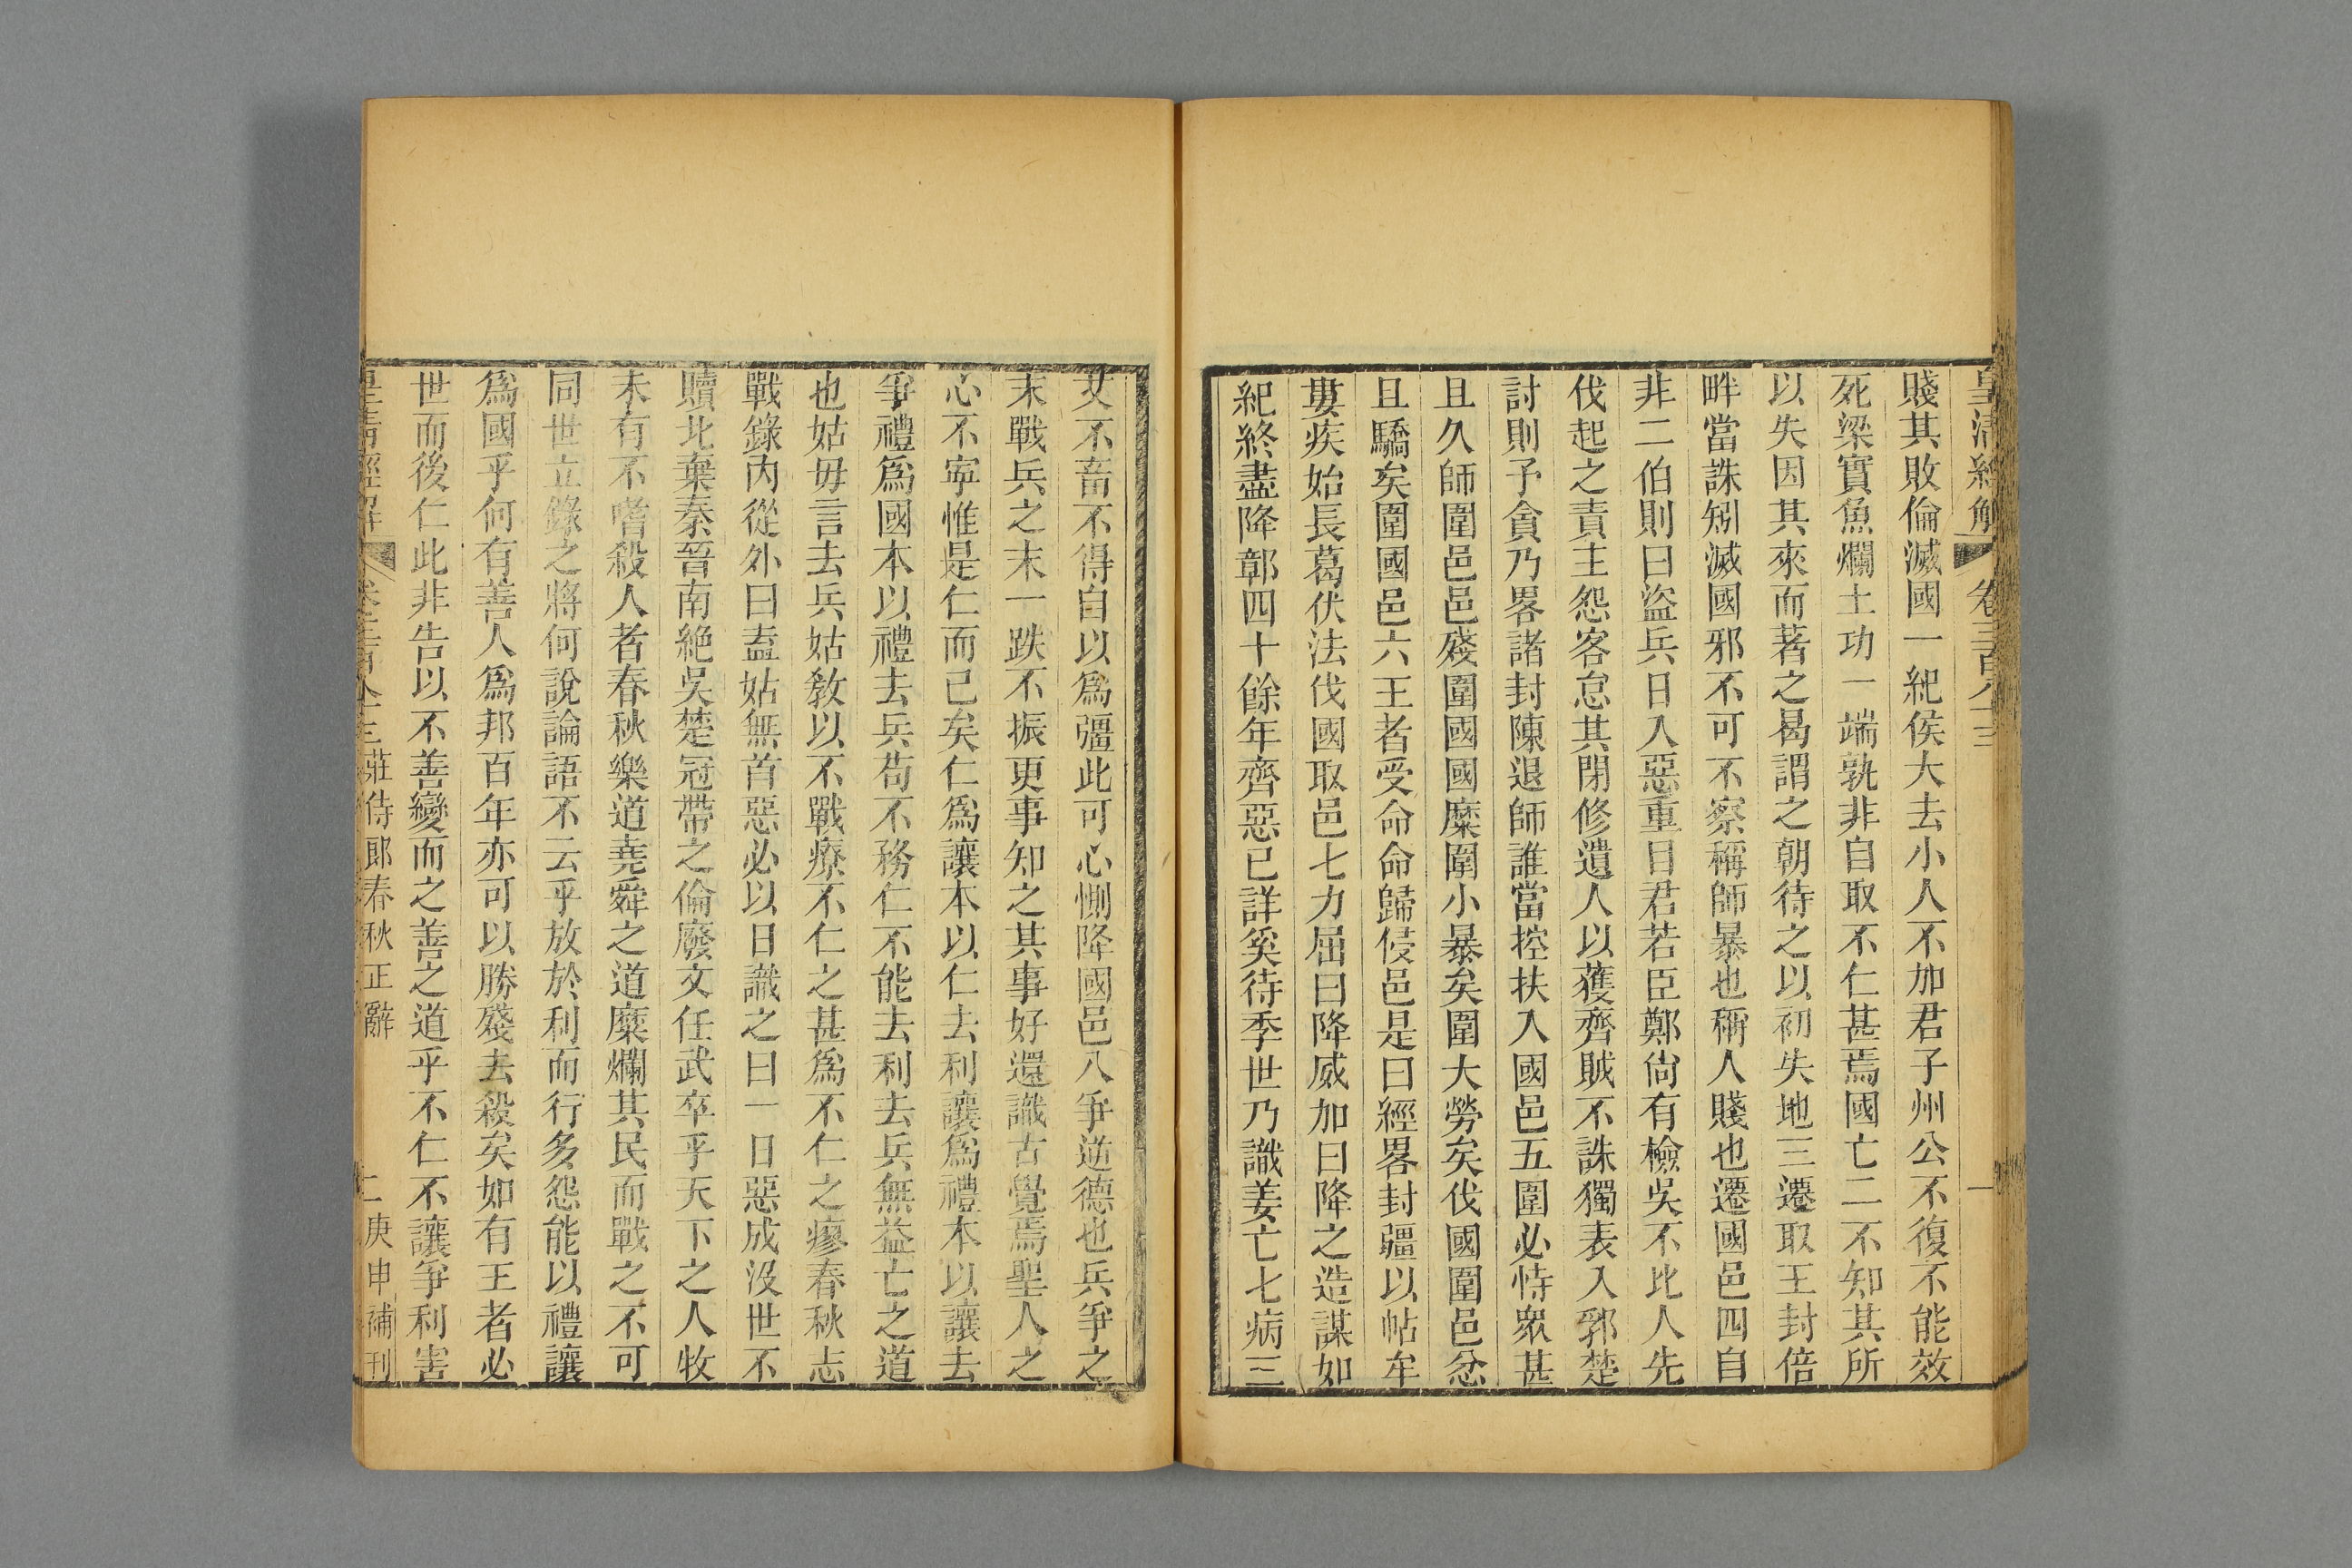 皇清經解 卷三百八十三 一
賤其敗倫滅國一紀侯大去小人不加君子州公不復不能效
死梁實魚爛土功一端孰非自取不仁甚焉國亡二不知其所
以失因其來而著之曷謂之朝待之以初失地三遷取王封倍
畔當誅矧滅國邪不可不察稱師暴也稱人賤也遷國邑四自
非二伯則曰盜兵日入惡重日君若臣鄭尙有檢吳不比人先
伐起之責主怨客怠其閉修遺人以蒦齊賊不誅獨表入郛楚
討則予貪乃畧諸封陳退師誰當控扶入國邑五圍必恃衆甚
且久師圍邑邑殘圍國國糜圍小暴矣圍大勞矣伐國圍邑忿
且驕矣圍國邑六王者受命命歸侵邑是曰經畧封疆以帖牟
婁疾始長葛伏法伐國取邑七力屈曰降威加曰降之造謀如
紀終盡降鄣四十餘年齊惡已詳奚待季世乃識姜亡七病三
艾不畜不得自以爲彊此可心惻降國邑八爭逆德也兵爭之
末戰兵之末一跌不振更事知之其事好還識古覺焉聖人之
心不寧惟是仁而已矣仁爲讓本以仁去利讓爲禮本以讓去
爭禮爲國本以禮去兵苟不務仁不能去利去兵無益亡之道
也姑毋言去兵姑敎以不戰療不仁之甚爲不仁之瘳春秋志
戰錄內從外曰葢姑無首惡必以日識之曰一日惡成沒世不
贖北棄秦晉南絶吳楚冠帶之倫廢文任武卒乎天下之人牧
未有不嗜殺人者春秋樂道堯舜之道糜爛其民而戰之不可
同世立錄之將何說論語不云乎放於利而行多怨能以禮讓
爲國乎何有善人爲邦百年亦可以勝殘去殺矣如有王者必
世而後仁此非告以不善變而之善之道乎不仁不讓爭利害
皇清經解 卷三百八十三 莊侍郎春秋正辭 二 庚申補刊